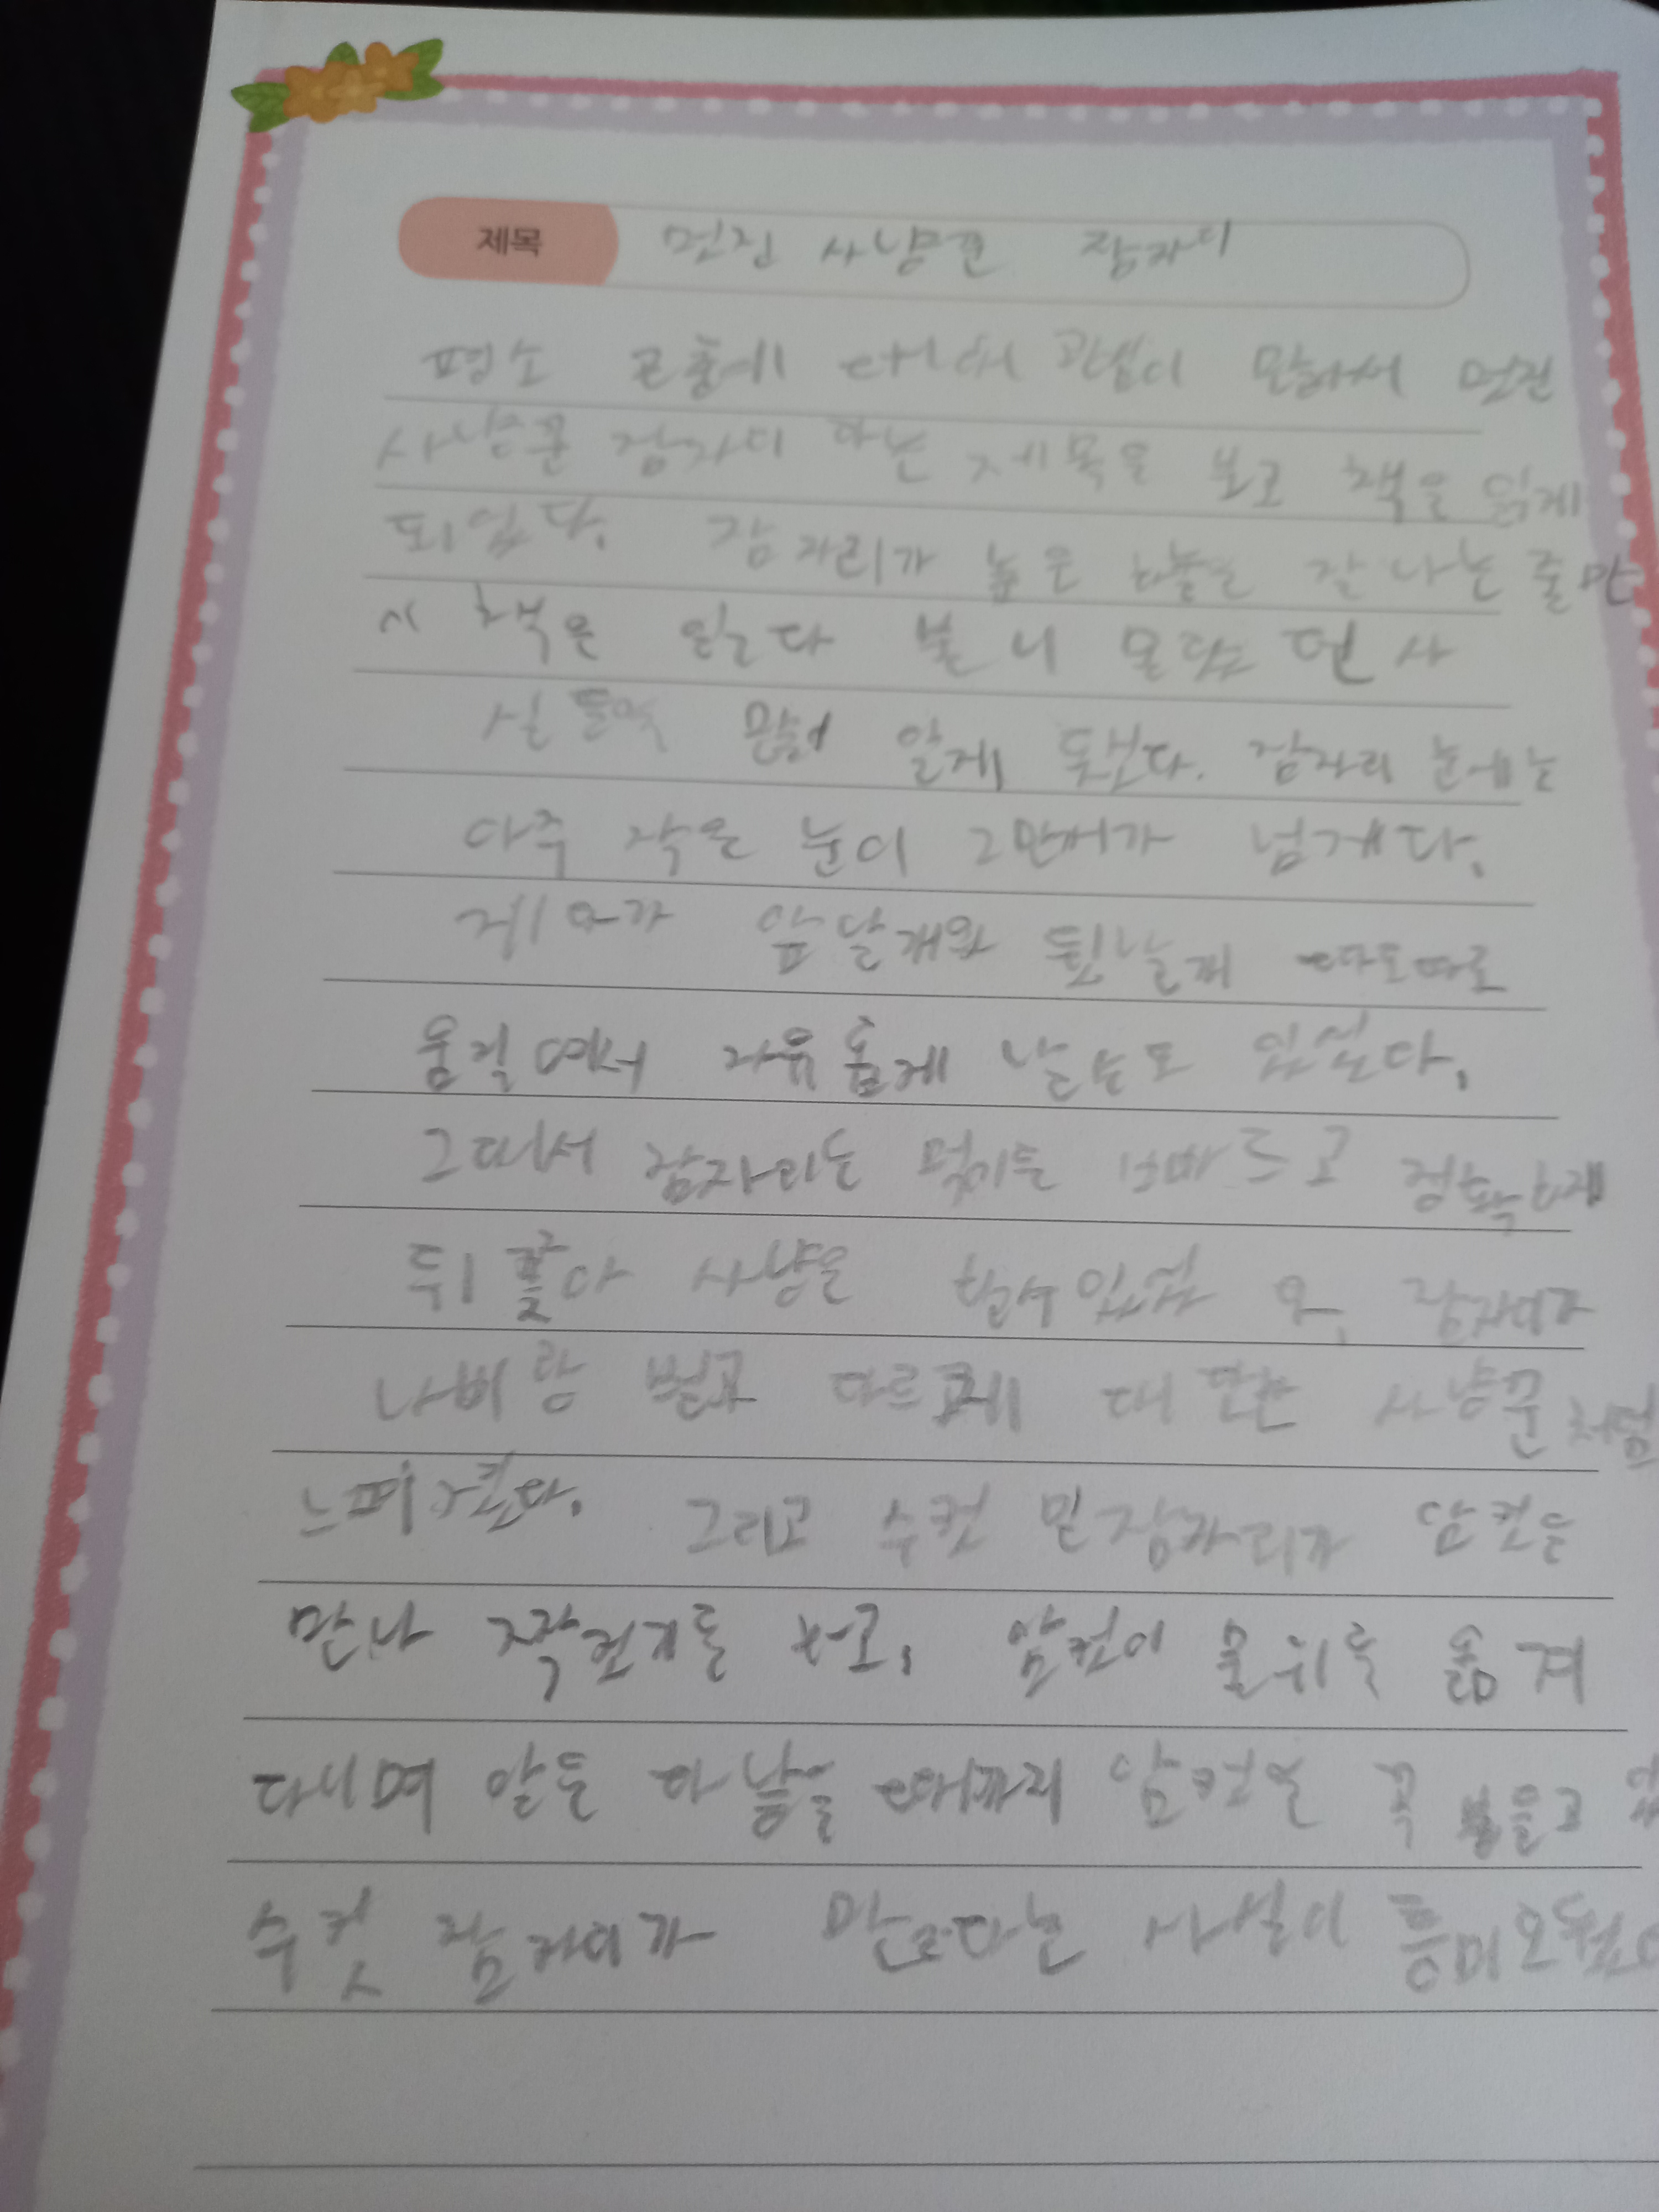 제목 멋진 사냥꾼 잠자리
평소 곤충에 대해 관심이 많아서 멋진
사냥꾼 잠자리 라는 제목을 보고 책을 읽게
되었다. 잠자리가 높은 하늘을 잘 나는 줄만
책을 읽다 볼 니 몰랐던 사
실들을 많이 알게 됐다. 잠자리 눈에는
아주 작은 눈이 2만개가 넘게다.
게다가 앞날개와 뒷날개 따로따로
움직여서 자유롭게 날수도 있었다.
그래서 잠자리는 먹이를 빠르고 정확하게
뒤쫓아 사냥을 할수있었 잠자리가
나비랑 벌과 다르게 대단한 사냥꾼처럼
느껴졌다. 그리고 수컷 밀잠자리가 암컷을
만나 짝짓기를 하고, 암컷이 물위를 옮겨
다니며 알을 다 낳을 때까지 암컷을 꼭 붙들고
수컷 잠자리가 만든다는 사실이 흥미로웠